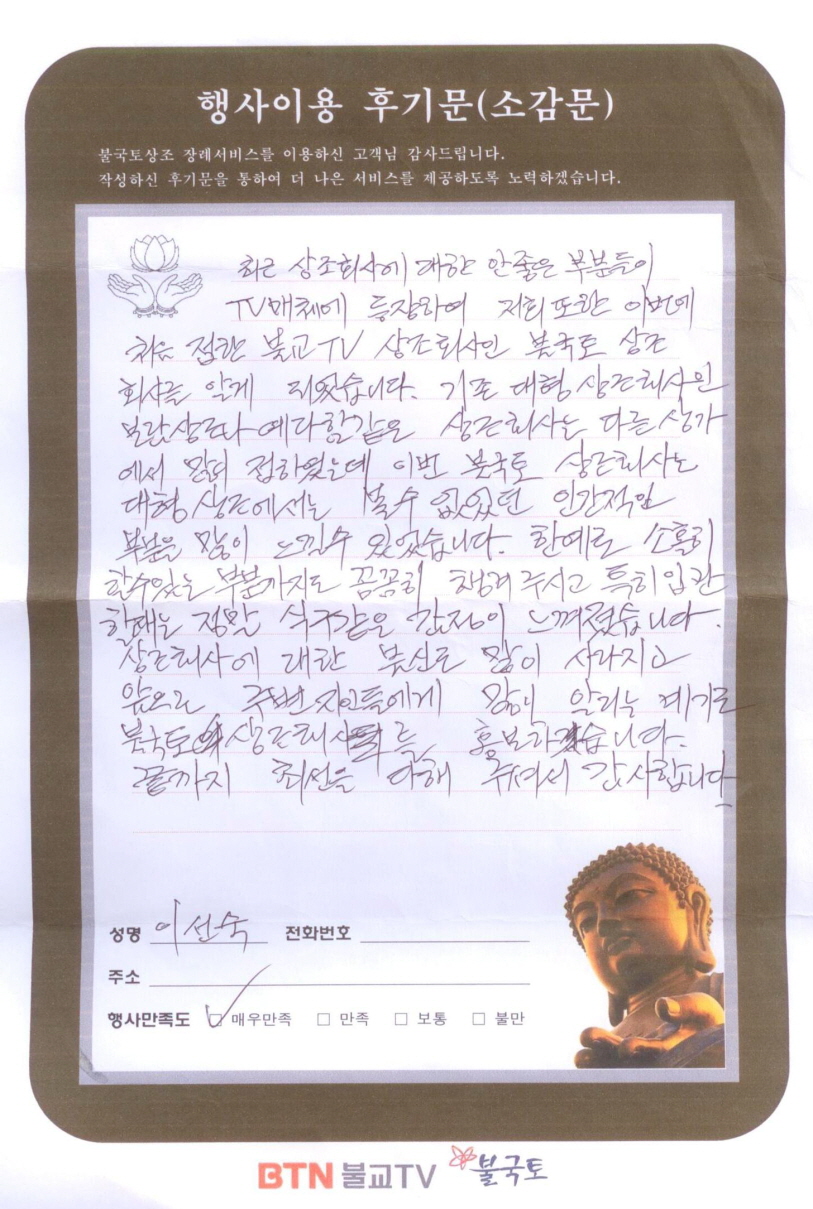 행사이용 후기문(소감문)
불국토상조 장례서비스를 이용하신 고객님 감사드립니다.
작성하신 후기문을 통하여 더 나은 서비스를 제공하도록 노력하겠습니다.
최근 상조회사에 대한 안좋은 부분들이
TV매체에 등장하여 저희 또한 이번에
처음 접한 불교TV 상조회사인 불국토 상조
회사를 알게 되었습니다. 기존 대형 상조회사인
보람상조나 예다함같은 상조회사는 다른 상가
에서 많이 접하였는데 이번 불국토 상조회사는
대형 상조에서는 볼수 없었던 인간적인
부분을 많이 느낄수 있었습니다. 한예로 소홀히
할수있는 부분까지도 꼼꼼히 챙겨 주시고 특히 입관
할때는 정말 식구같은 감정이 느껴졌습니다.
상조회사에 대한 불신도 많이 사라지고
앞으로 주변 지인들에게 많이 알리는 계기로
불국토 상조회사를 홍보하겠습니다.
끝까지 최선을 다해 주셔서 감사합니다
성명 이선숙 전화번호
주소
행사만족도 □ 매우만족 □ 만족 □ 보통 □ 불만
BTN 불교TV 불국토